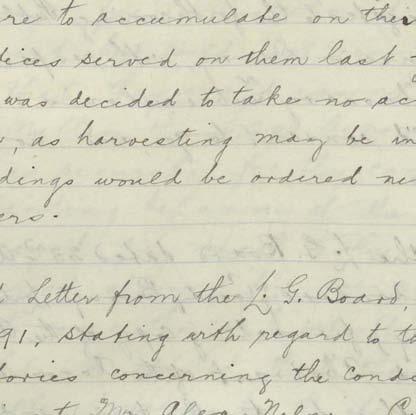 re to accumulate on their
tices served on them last
was decided to take no ac
, as harvesting may be in
dings would be ordered ne
ers.
Letter from the L. G. Board,
91, stating with regard to t
tories concerning the cond
t Mr Alex